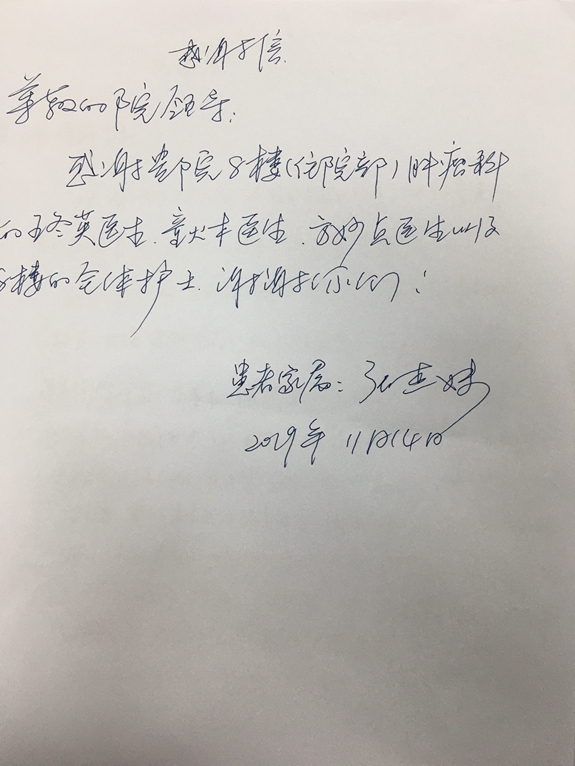 感谢信
尊敬的院领导:
感谢贵院8楼(住院部)肿瘤科
的王冬英医生、章 医生、方妙 医生以及
8楼的全体护士、谢谢你们!
患者家属:
2019年11月14日